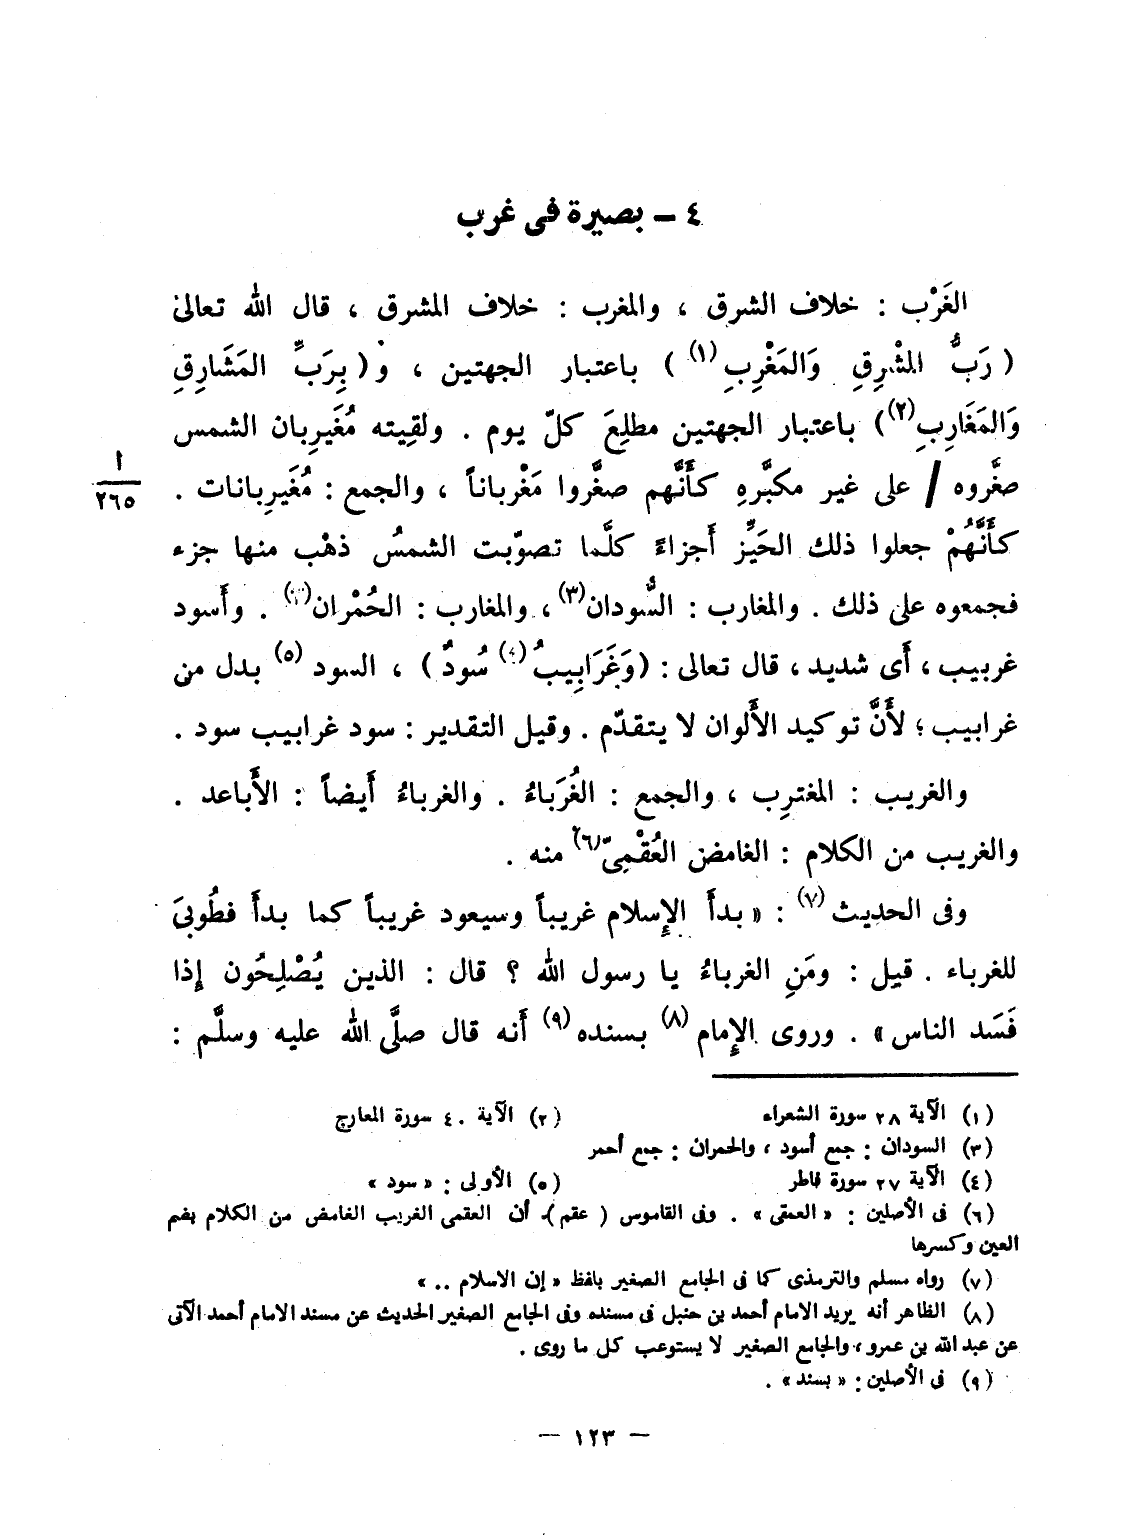 ٤ – بصيرة فى غرب
الغَرْب : خلاف الشرق ، والمغرب : خلاف المشرق ، قال الله تعالى
( رَبُّ المشْرِقِ وَالمَغْرِبِ(١) ) باعتبار الجهتين ، و( بِرَبِّ المَشَارِقِ
وَالمَغَارِبِ(٢)) باعتبار الجهتين مطلِعَ كلّ يوم . ولقِيته مُغَيرِبان الشمس
صغَّروه / على غير مكبَّرهِ كأَنَّهم صغَّروا مَغْرباناً ، والجمع : مُغَيرِبانات .
ا
٢٦٥
كأَنَّهُمْ جعلوا ذلك الحَيِّز أَجزاءً كلَّما تصوّبت الشمسُ ذهْب منها جزء
فجمعوه على ذلك . والمغارب : السُّودان(٣) ، والمغارب : الحُمْران(٣) . وأَسود
غربيب ، أَى شديد ، قال تعالى : (وَغَرَابِيبُ(٤) سُودٌ ) ، السود (٥) بدل من
غرابيب ؛ لأَنَّ توكيد الأَلوان لا يتقدّم . وقيل التقدير : سود غرابيب سود .
والغريب : المغترِب ، والجمع : الغُرَباءُ . والغرباءُ أَيضاً : الأَباعد .
والغريب من الكلام : الغامض العُقْمِىّ(٦) منه .
وفى الحديث (٧) : « بدأَ الإِسلام غريباً وسيعود غريباً كما بدأَ فطُوبىَ
للغرباء . قيل : ومَنِ الغرباءُ يا رسول الله ؟ قال : الذين يُصْلِحُون إِذا
فَسَد الناس » . وروى الإِمام (٨) بسنده (٩) أَنه قال صلَّى الله عليه وسلَّم :
(١) الآية ٢٨ سورة الشعراء (٢) الآية ٤٠ سورة المعارج
(٣) السودان : جمع أسود ، والحمران : جمع أحمر
(٤) الآية ٢٧ سورة فاطر (٥) الأولى : « سود »
(٦) فى الأصلين : « العمقى » . وفى القاموس ( عقم ) أن العقمى الغريب الغامض من الكلام بضم
العين وكسرها
(٧) رواه مسلم والترمذى كما فى الجامع الصغير بلفظ « إن الاسلام .. »
(٨) الظاهر أنه يريد الامام أحمد بن حنبل فى مسنده وفى الجامع الصغير الحديث عن مسند الامام أحمد الآتى
عن عبد الله بن عمرو ، والجامع الصغير لا يستوعب كل ما روى .
(٩) فى الأصلين : « بسند » .
— ١٢٣ —